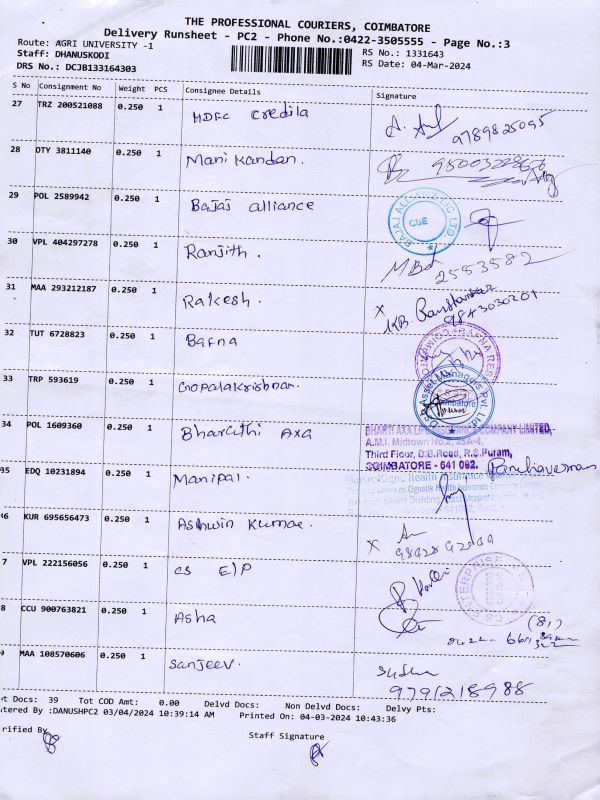 THE PROFESSIONAL COURIERS, COIMBATORE
Delivery Runsheet - PC2 - Phone No.:0422-3505555 - Page No.:3
Route: AGRI UNIVERSITY -1
RS No.: 1331643
Staff: DHANUSKODI
RS Date: 04-Mar-2024
DRS No.: DCJB133164303
S No Consignment No Weight PCS Consignee Details Signature
27 TRZ 200521088 0.250 1 HDFC Credila 9789825095
28 DTY 3811140 0.250 1 Mani Kandan.
29 POL 2589942 0.250 1 Bajaj alliance
CBE
30 VPL 404297278 0.250 1 Ranjith. 2553582
31 MAA 293212187 0.250 1 Rakesh. X 9843030201
32 TUT 6728823 0.250 1 Bafna
33 TRP 593619 0.250 1 Gopalakrishnan.
34 POL 1609360 0.250 1 Bharathi Axa
A.M.I. Midtown No.2, 25A-4,
Third Floor, D.B.Road, R.S.Puram,
COIMBATORE - 641 002.
35 EDQ 10231894 0.250 1 Manipal.
36 KUR 695656473 0.250 1 Ashwin Kumar. X
7 VPL 222156056 0.250 1 CS E/P
8 CCU 900763821 0.250 1 Asha
9 MAA 108570606 0.250 1 Sanjeev. Sudha
9791218988
ot Docs: 39 Tot COD Amt: 0.00 Delvd Docs: Non Delvd Docs: Delvy Pts:
tered By :DANUSHPC2 03/04/2024 10:39:14 AM Printed On: 04-03-2024 10:43:36
rified By
Staff Signature